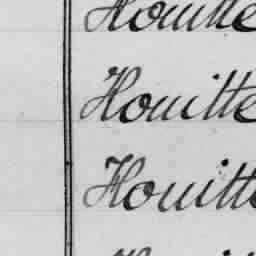 Houitte
Houitte
Houitte